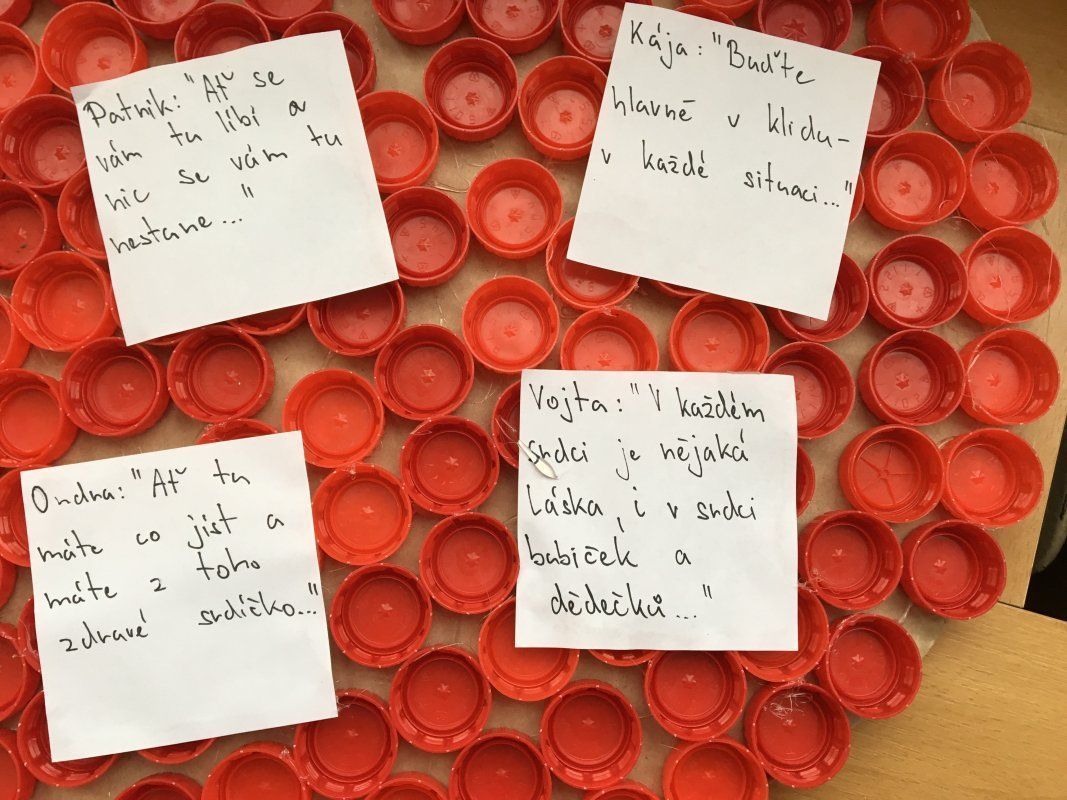 Patrik: "Ať se
vám tu líbí a
nic se vám tu
nestane..."
Kája: "Buďte
hlavně v klidu-
v každé situaci..."
Ondra: "Ať tu
máte co jíst a
máte z toho
zdravé srdíčko..."
Vojta: "V každém
srdci je nějaká
láska, i v srdci
babiček a
dědečků..."